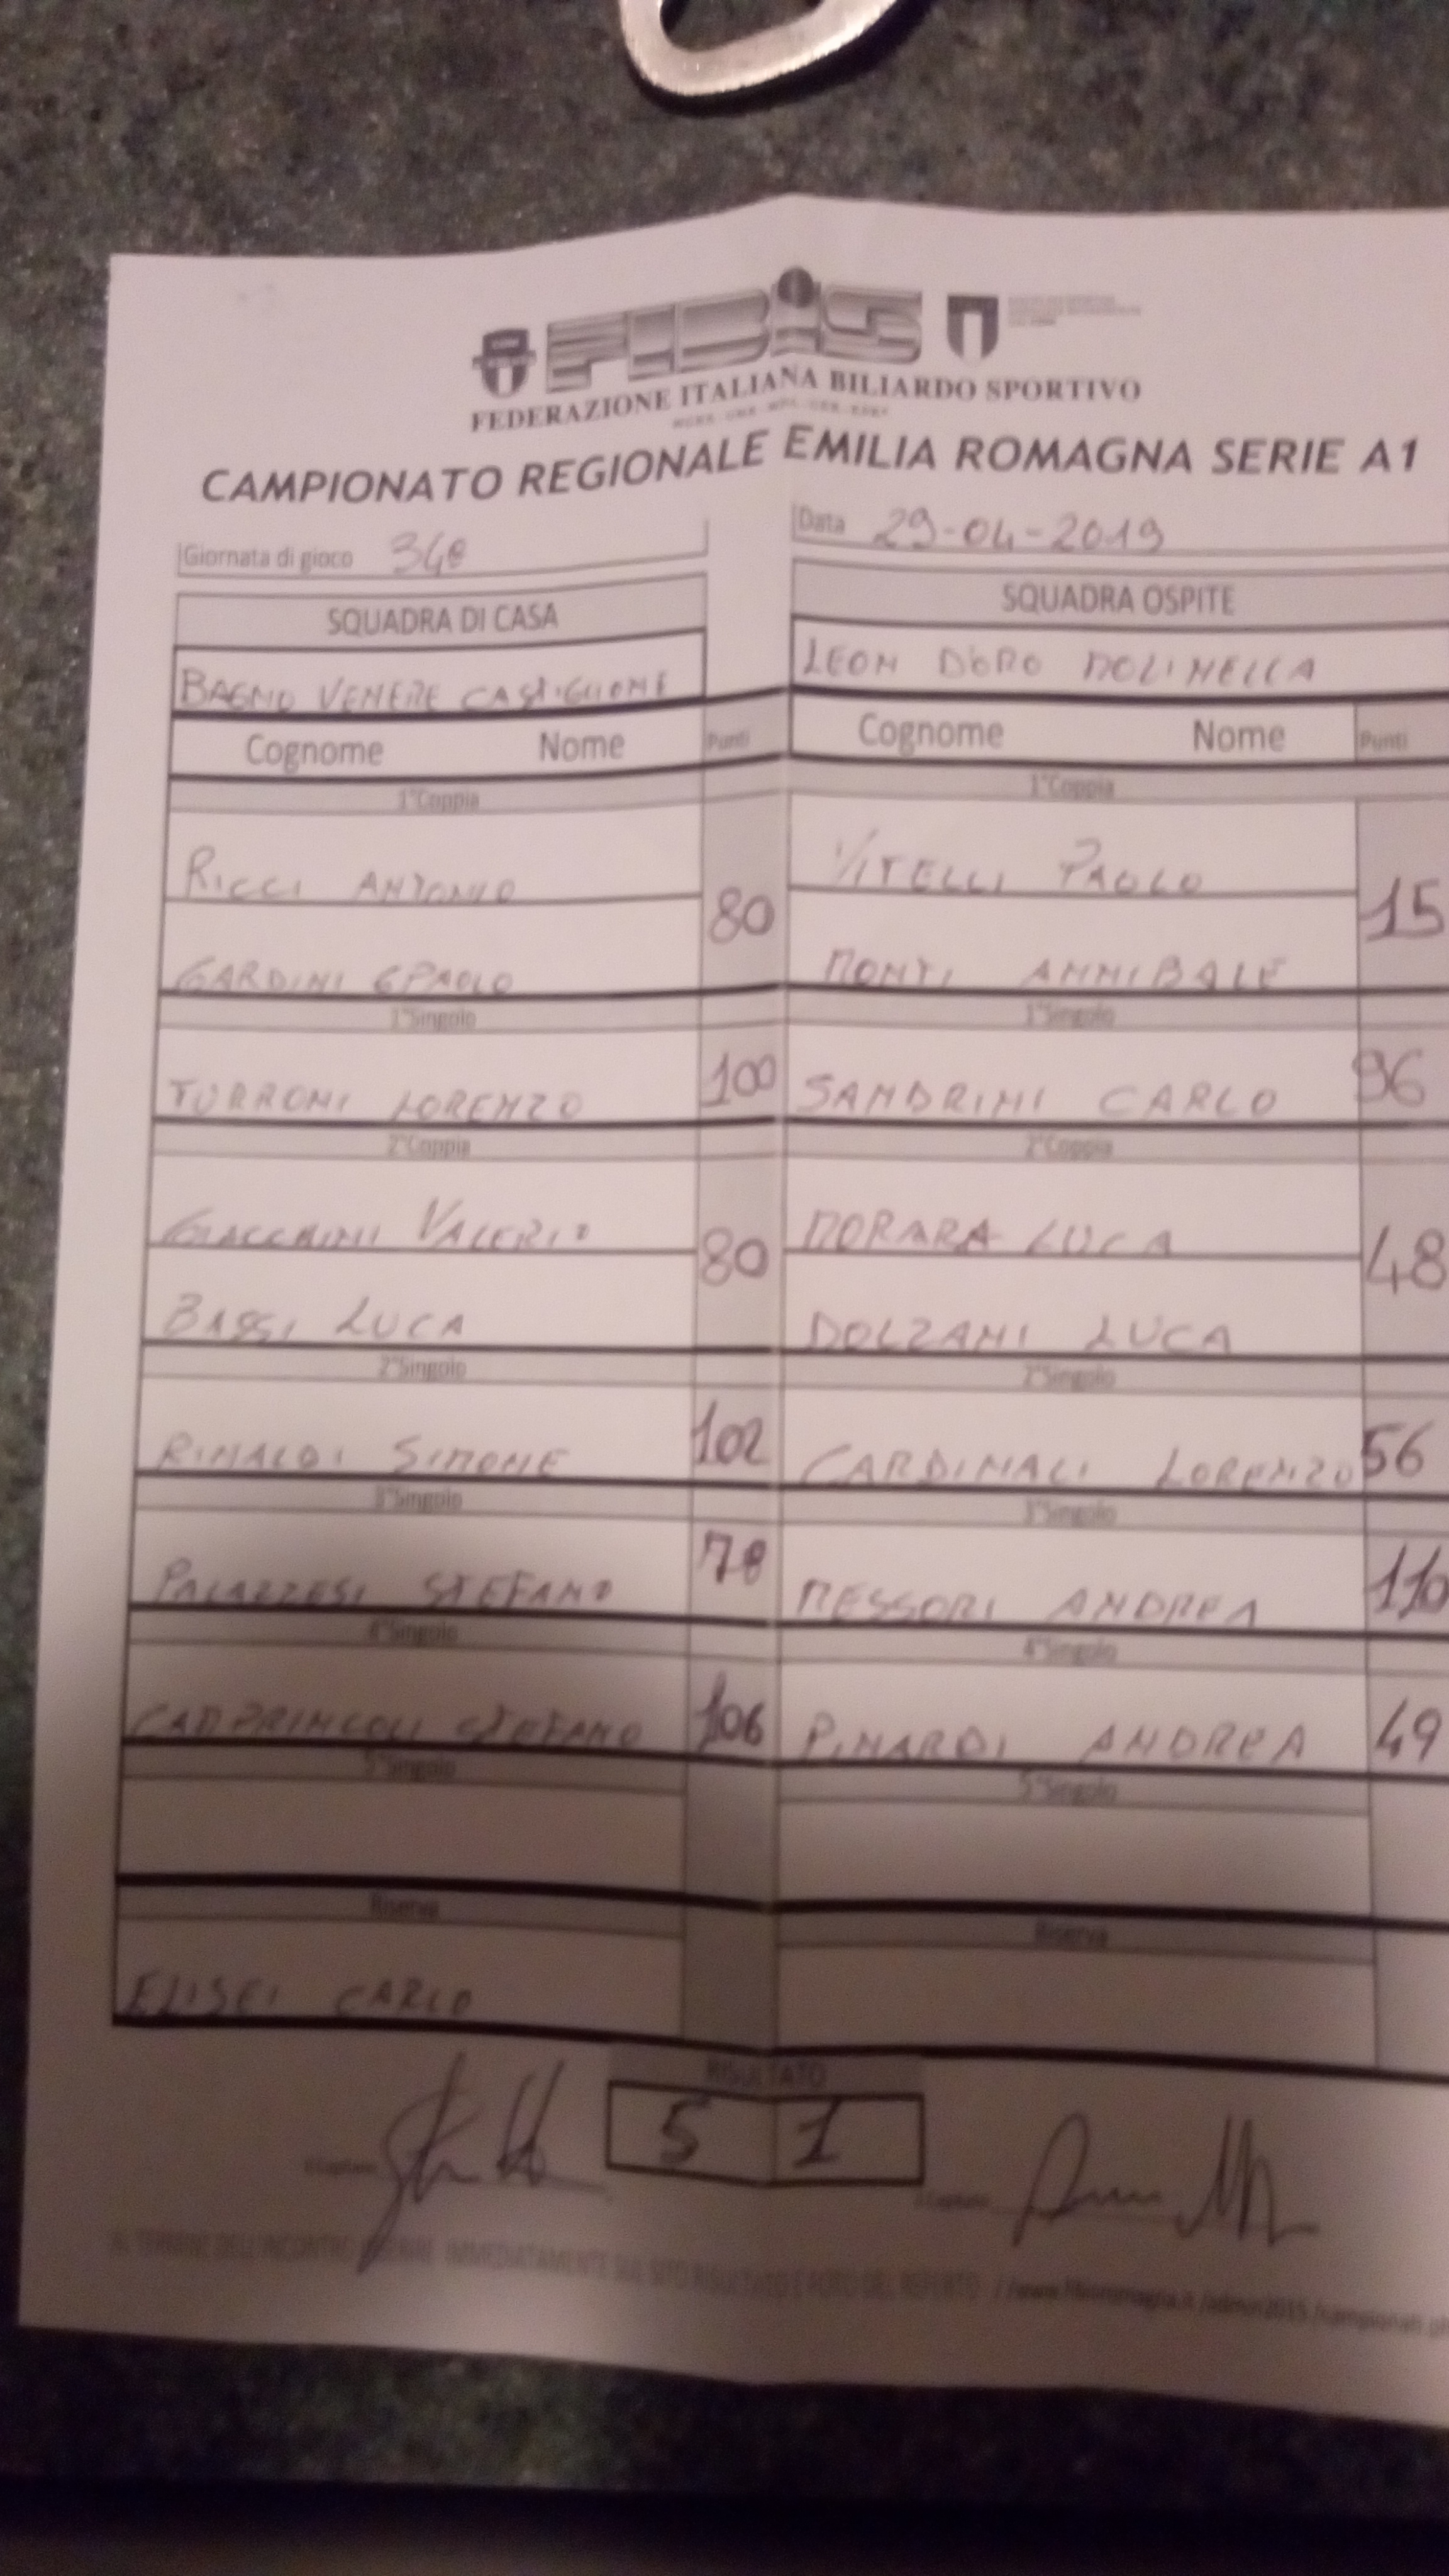 FIBIS
FEDERAZIONE ITALIANA BILIARDO SPORTIVO
CAMPIONATO REGIONALE EMILIA ROMAGNA SERIE A1
Giornata di gioco 34ª Data 29-04-2019
SQUADRA DI CASA SQUADRA OSPITE
BAGNO VENERE CASTIGLIONE LEON D'ORO MOLINELLA
Cognome Nome Punti Cognome Nome Punti
1°Coppia 1°Coppia
RICCI ANTONIO 80 VITELLI PAOLO 15
GARDINI GPAOLO MONTI ANNIBALE
1°Singolo 1°Singolo
TURRONI LORENZO 100 SANDRINI CARLO 96
2°Coppia 2°Coppia
GIACCHINI VALERIO 80 MORARA LUCA 48
BASSI LUCA DOLZANI LUCA
2°Singolo 2°Singolo
RINALDI SIMONE 102 CARDINALI LORENZO 56
3°Singolo 3°Singolo
PALAZZESI STEFANO 78 MESSORI ANDREA 110
4°Singolo 4°Singolo
STEFANO 106 PINARDI ANDREA 49
5°Singolo 5°Singolo
Riserva Riserva
ELISEI CARLO
RISULTATO
5 1